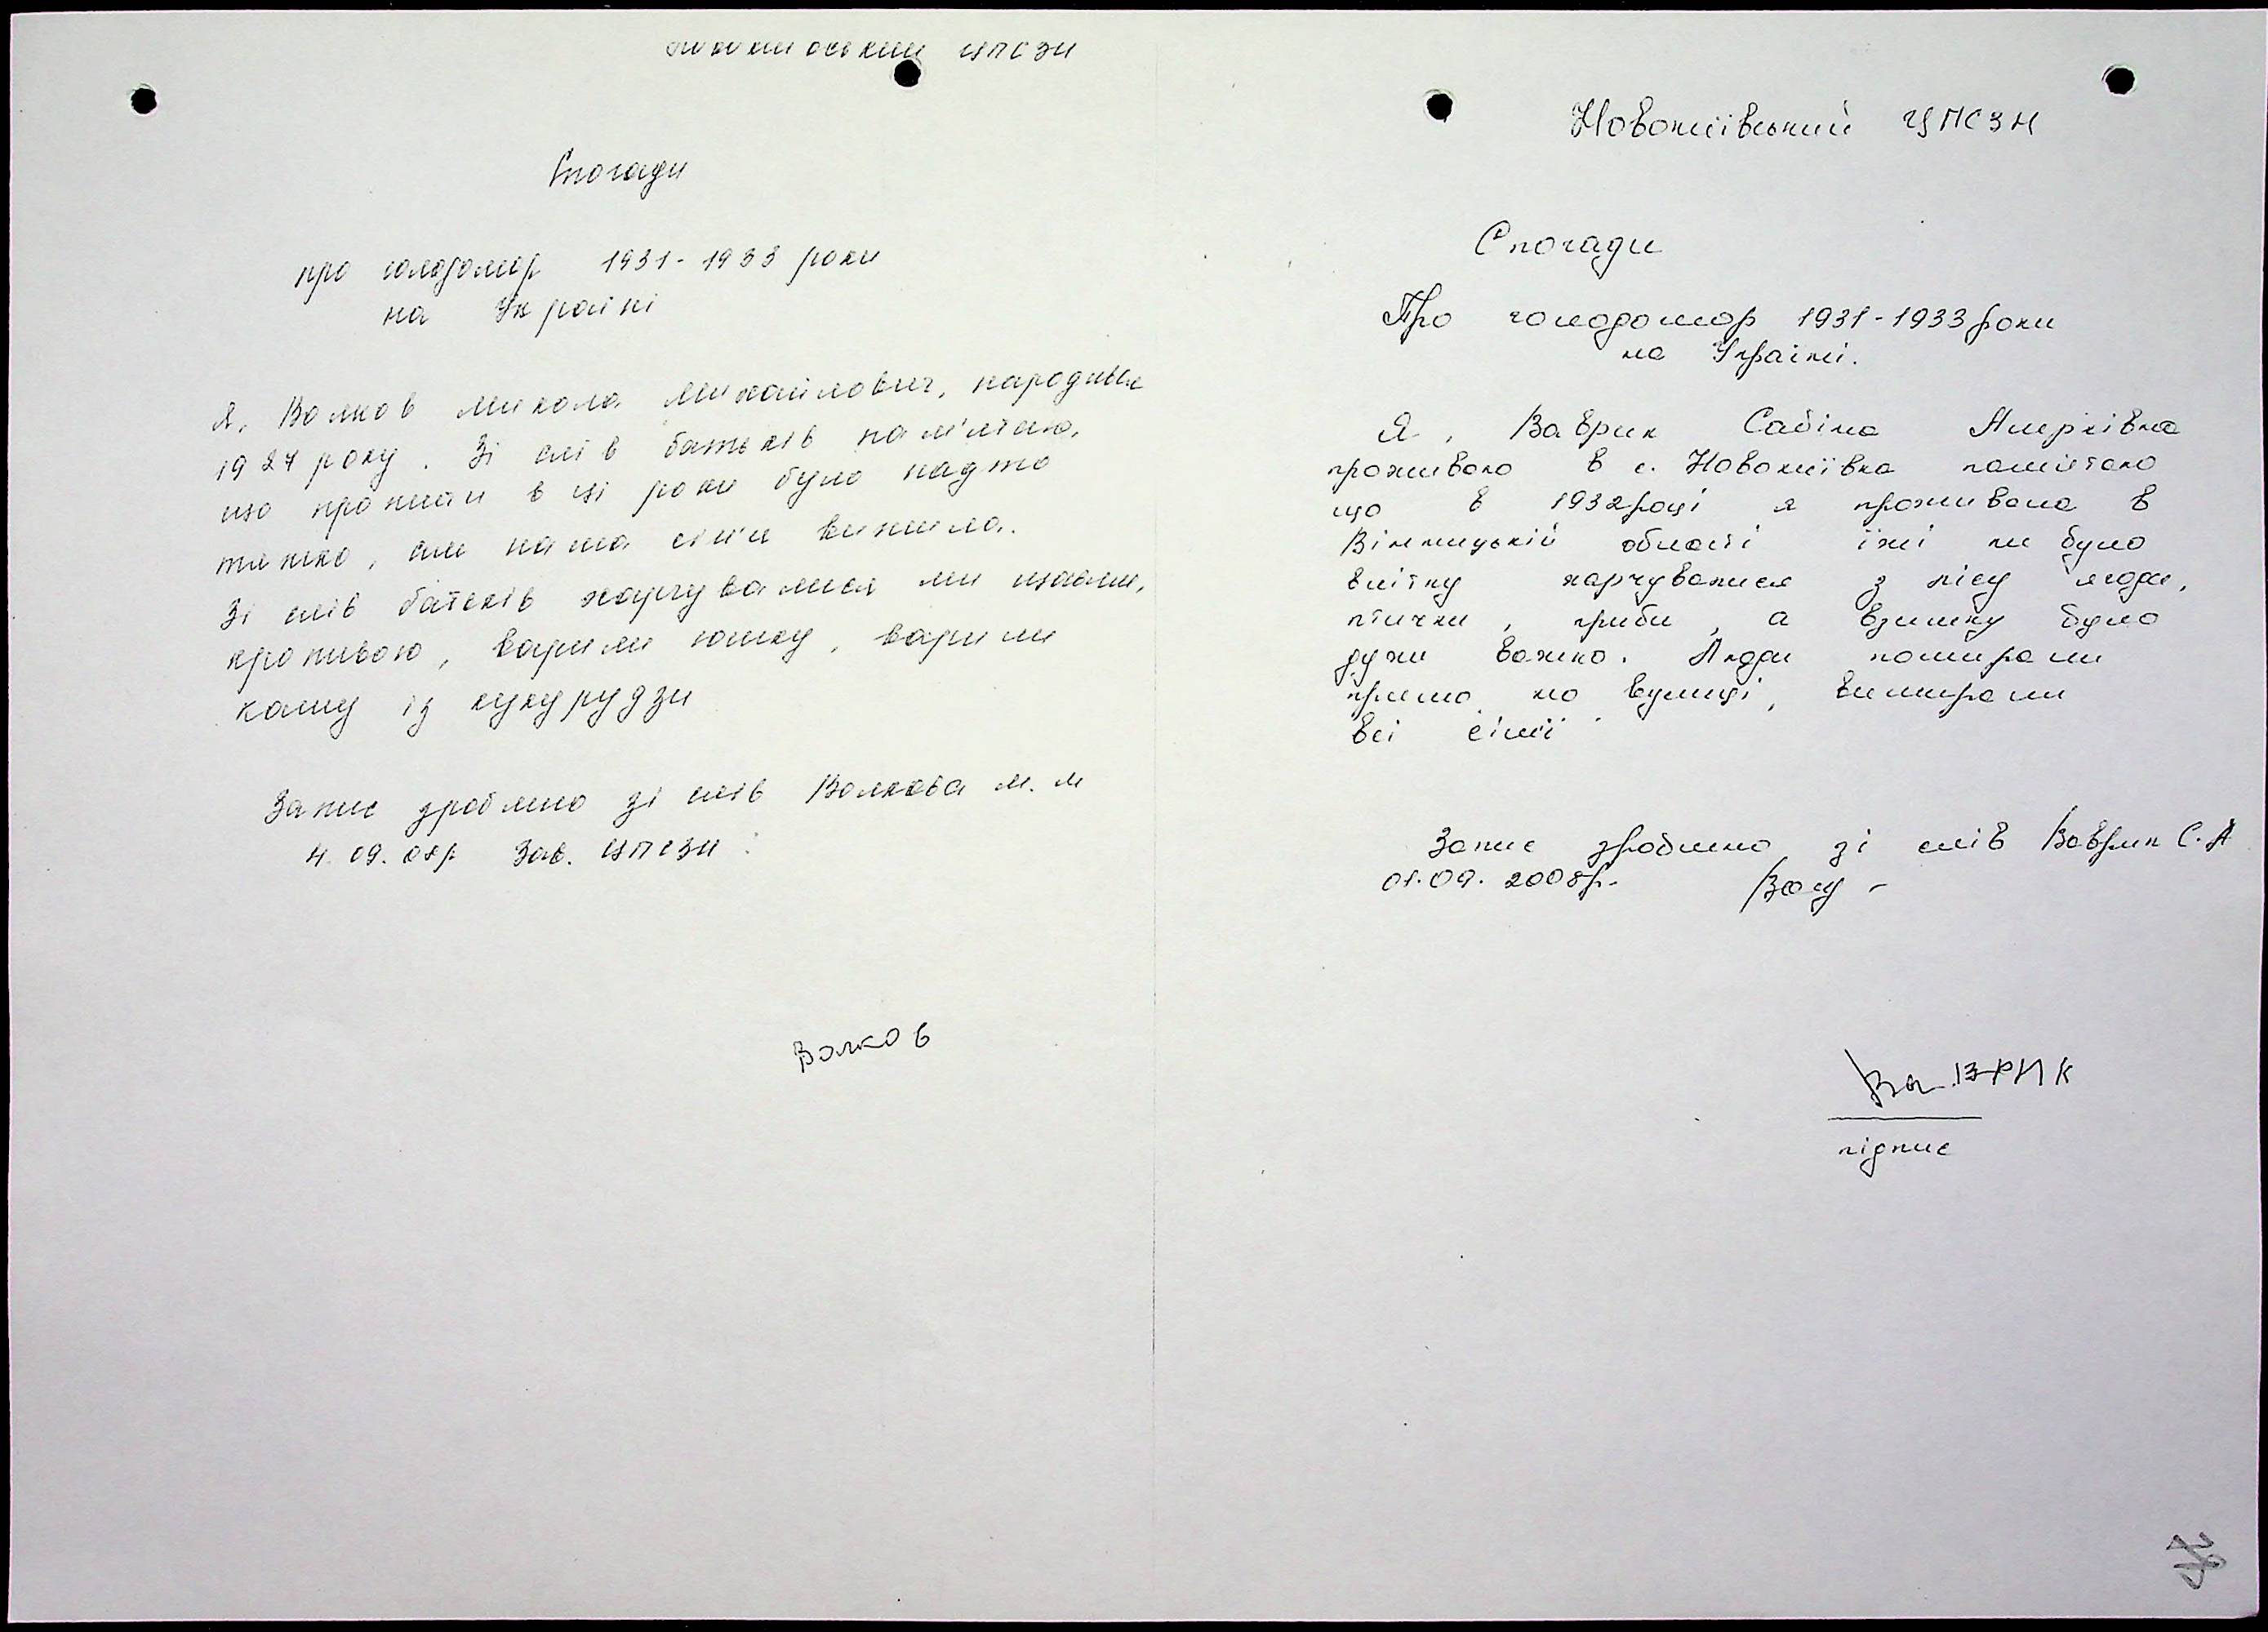 ЦПСЗН
Спогади
про голодомор 1931-1933 роки
на Україні
Я, Волков Микола Михайлович, народився
1927 року. Зі слів батьків пам'ятаю,
що прожити в ці роки було надто
тяжко, але наша сім'я вижила.
Зі слів батьків харчувалися ми щавлем,
кропивою, варили юшку, варили
кашу із кукурудзи
Запис зроблено зі слів Волкова М. М
4. 09. 08р Зав. ЦПСЗН
Волков
Новокиївський ЦПСЗН
Спогади
Про голодомор 1931-1933 роки
на Україні.
Я, Ваврик Сабіна
проживаю в с. Новокиївка памятаю
що в 1932 році я проживала в
Вінницькій області їжі не було
влітку харчувалися з лісу ягоди,
птички, гриби, а взимку було
дуже важко. Люди помирали
прямо на вулиці, вимирали
всі сімї
Запис зроблено зі слів Ваврик С. А
01.09. 2008р.
Ваврик
підпис